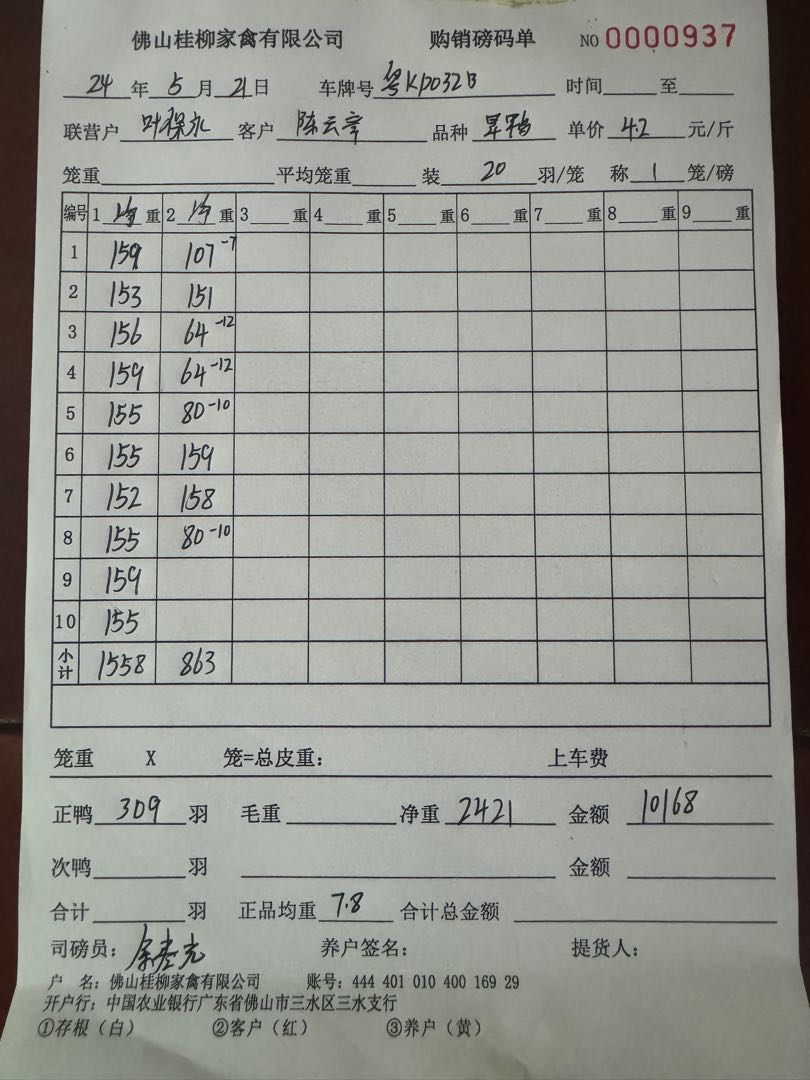 佛山桂柳家禽有限公司 购销磅码单 NO 0000937
24年5月21日 车牌号 粤KP032B 时间____至____
联营户 叶保永 客户 陈云章 品种 旱鸭 单价 4.2 元/斤
笼重____平均笼重____装 20 羽/笼 称 1 笼/磅
编号 1 均 重 2 均 重 3____重 4____重 5____重 6____重 7____重 8____重 9____重
1 159 107-7
2 153 151
3 156 64-12
4 159 64-12
5 155 80-10
6 155 159
7 152 158
8 155 80-10
9 159
10 155
小计 1558 863
笼重 X 笼=总皮重: 上车费
正鸭 309 羽 毛重____净重 2421 金额 10168
次鸭____羽 ____金额____
合计____羽 正品均重 7.8 合计总金额____
司磅员: 养户签名: 提货人:
户 名: 佛山桂柳家禽有限公司 账号: 444 401 010 400 169 29
开户行: 中国农业银行广东省佛山市三水区三水支行
①存根(白) ②客户(红) ③养户(黄)